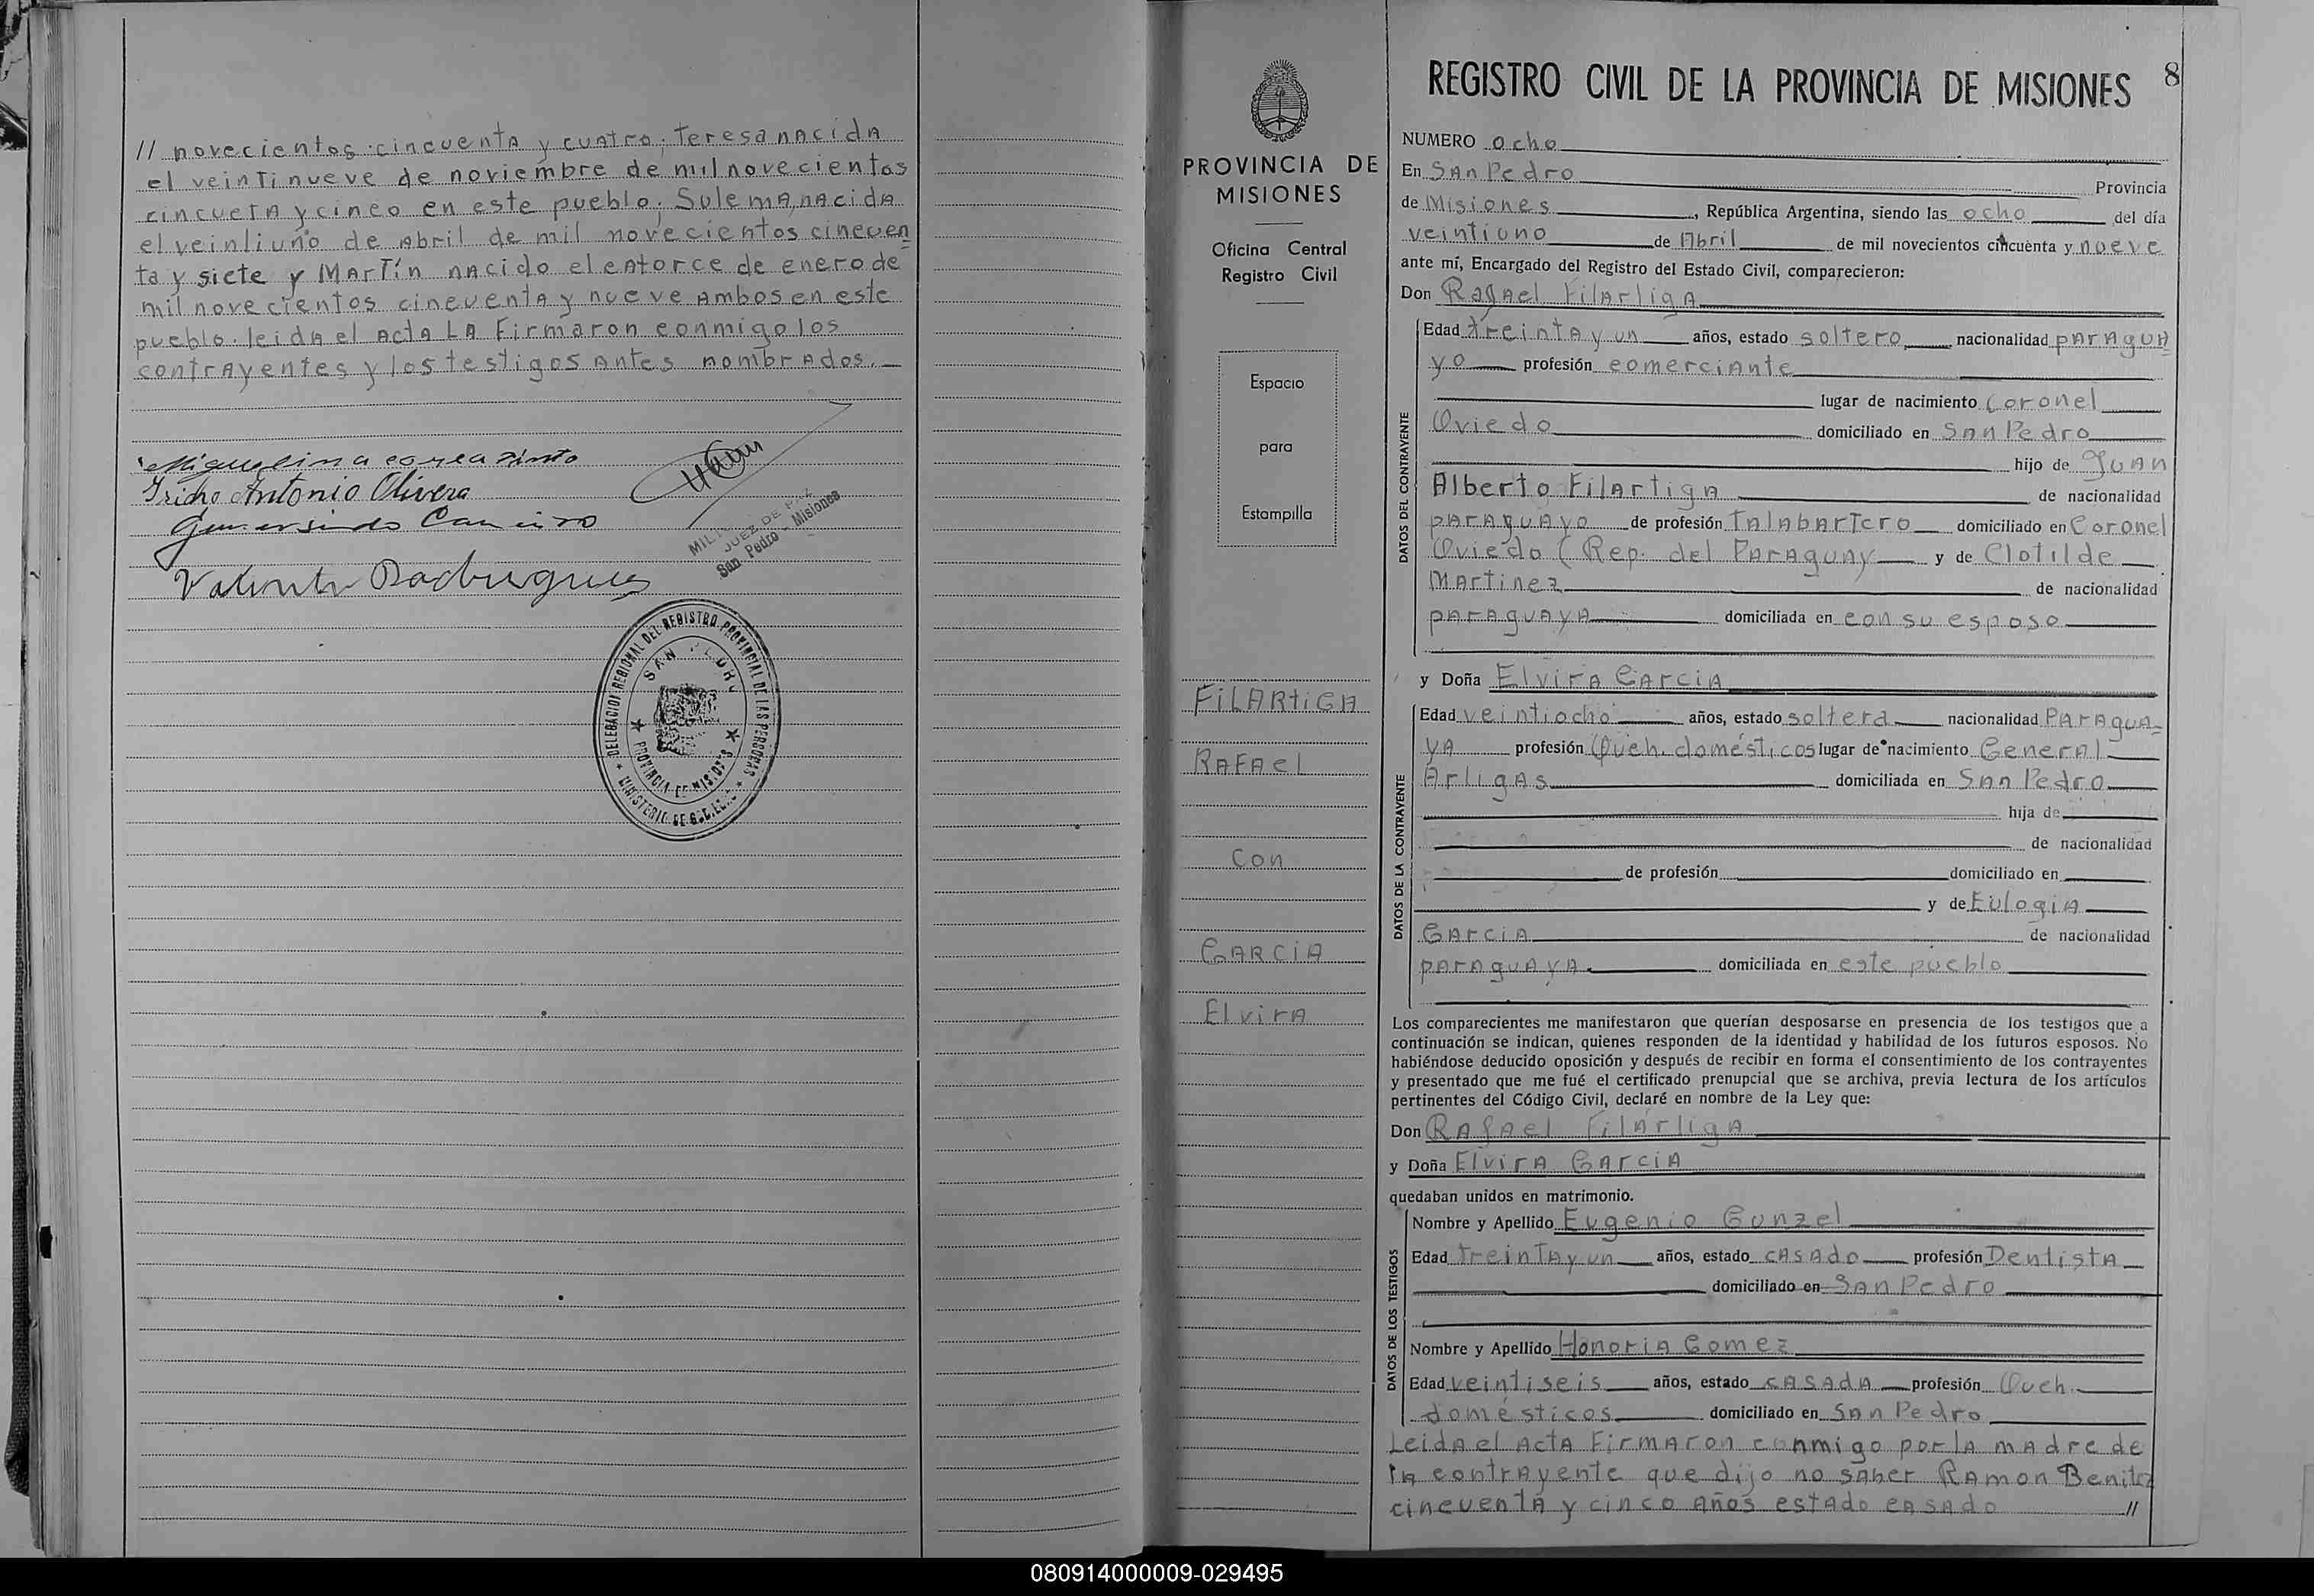 // novecientos cincuenta y cuatro; Teresa nacida
el veintinueve de noviembre de mil novecientos
cincueta y cinco en este pueblo; Sulema, nacida
el veintiuno de Abril de mil novecientos cincuen
ta y siete y Martín nacido el catorce de enero de
mil novecientos cincuenta y nueve ambos en este
pueblo. leida el acta La Firmaron conmigo los
contrayentes y los testigos antes nombrados.
Antonio Olivera
JUEZ DE PAZ
San Pedro - Misiones
DELEGACION REGIONAL DEL REGISTRO PROVINCIAL DE LAS PERSONAS
SAN PEDRO
PROVINCIA DE MISIONES
PROVINCIA DE
MISIONES
Oficina Central
Registro Civil
Espacio
para
Estampilla
FILARTIGA
RAFAEL
Con
GARCIA
Elvira
REGISTRO CIVIL DE LA PROVINCIA DE MISIONES 8
NUMERO ocho
En San Pedro Provincia
de Misiones, República Argentina, siendo las ocho del día
veintiuno de Abril de mil novecientos cincuenta y nueve
ante mí, Encargado del Registro del Estado Civil, comparecieron:
Don Rafael Filartiga
DATOS DEL CONTRAYENTE
Edad treinta y un años, estado soltero nacionalidad paragua
yo profesión comerciante
lugar de nacimiento Coronel
Oviedo domiciliado en San Pedro
hijo de Juan
Alberto Filartiga de nacionalidad
paraguayo de profesión Talabartero domiciliado en Coronel
Oviedo (Rep. del Paraguay y de Clotilde
Martinez de nacionalidad
paraguaya domiciliada en con su esposo
y Doña Elvira Garcia
DATOS DE LA CONTRAYENTE
Edad veintiocho años, estado soltera nacionalidad Paragua-
ya profesión Queh. domésticos lugar de nacimiento General
Artigas domiciliada en San Pedro
hija de
de nacionalidad
de profesión domiciliado en
y de Eulogia
Garcia de nacionalidad
paraguaya domiciliada en este pueblo
Los comparecientes me manifestaron que querían desposarse en presencia de los testigos que a
continuación se indican, quienes responden de la identidad y habilidad de los futuros esposos. No
habiéndose deducido oposición y después de recibir en forma el consentimiento de los contrayentes
y presentado que me fué el certificado prenupcial que se archiva, previa lectura de los artículos
pertinentes del Código Civil, declaré en nombre de la Ley que:
Don Rafael Filartiga
y Doña Elvira Garcia
quedaban unidos en matrimonio.
DATOS DE LOS TESTIGOS
Nombre y Apellido Eugenio Gunzel
Edad treinta y un años, estado casado profesión Dentista
domiciliado en San Pedro
Nombre y Apellido Honoria Gomez
Edad veintiseis años, estado casada profesión Queh.
domésticos domiciliado en San Pedro
Leida el acta Firmaron conmigo por la madre de
la contrayente que dijo no saber Ramon Benitez
cincuenta y cinco años estado casado //
080914000009-029495